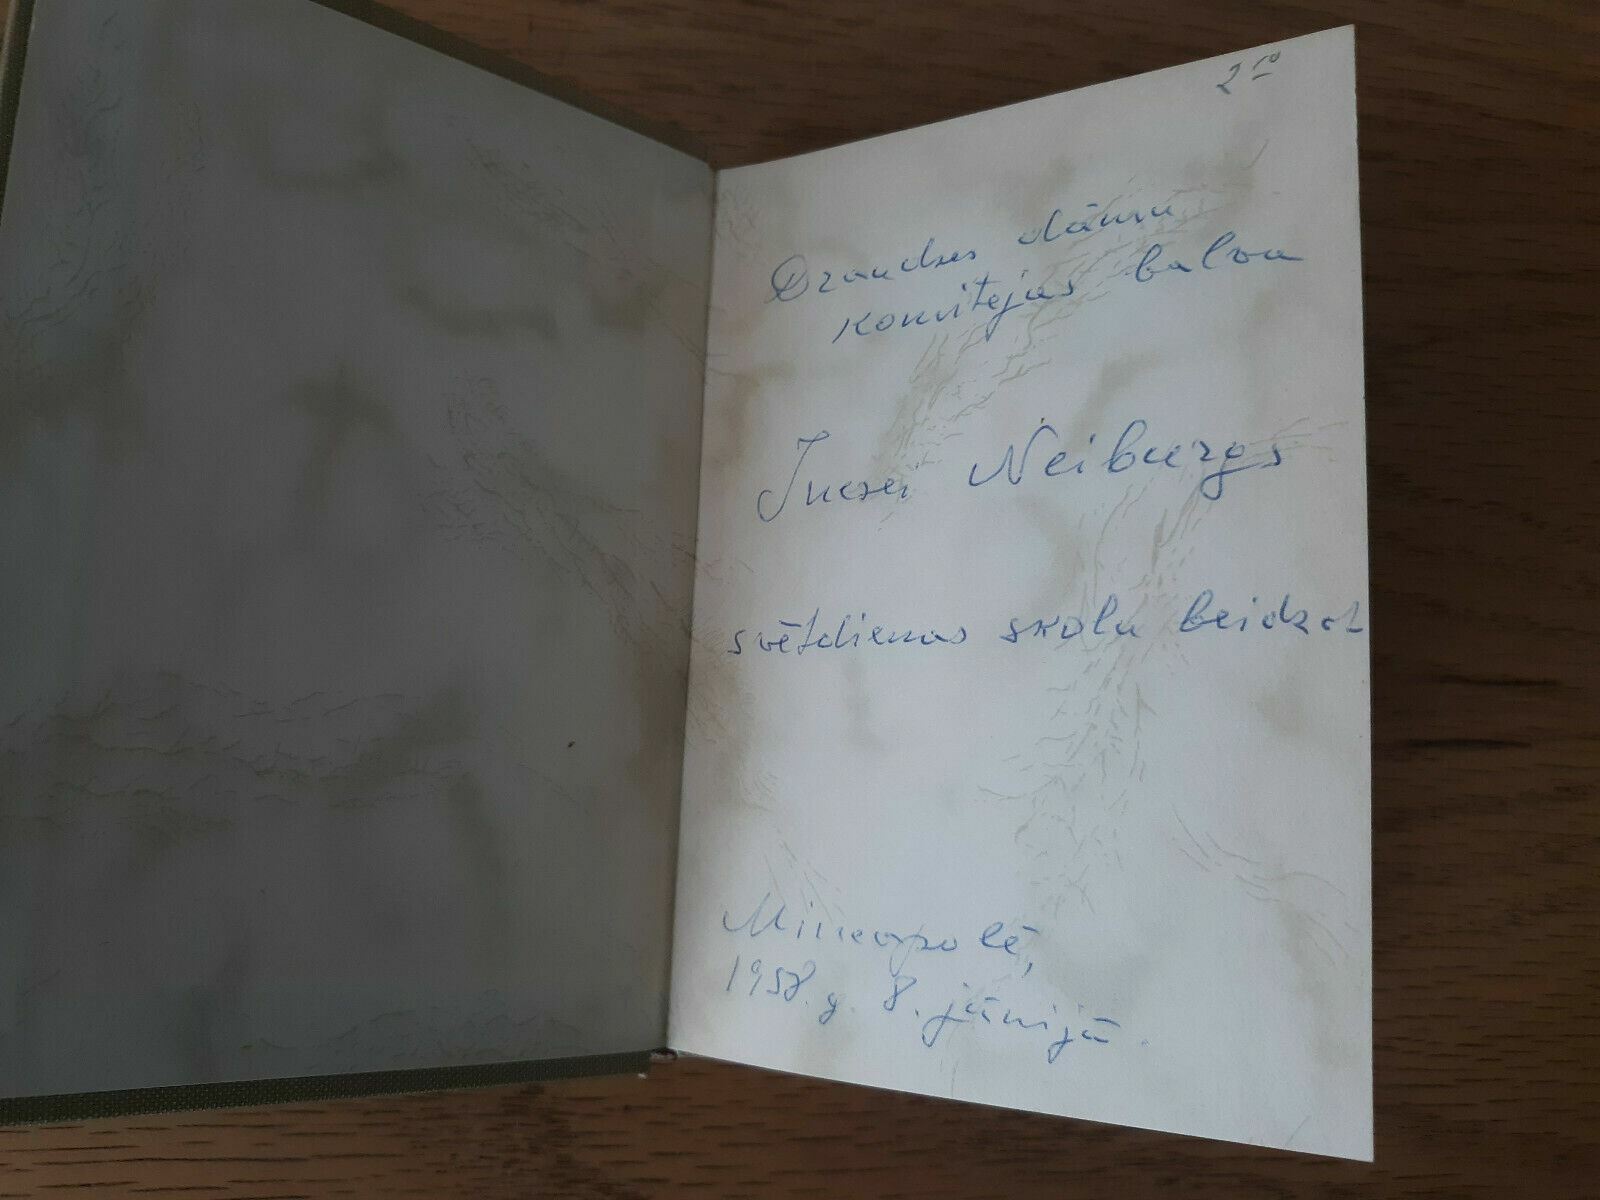 2 10
Draudzes dāmu
komitejas balva
Inesei Neibergs
svētdienas skolu beidzot
Mineapolē,
1958. g. 8. jūnijā.